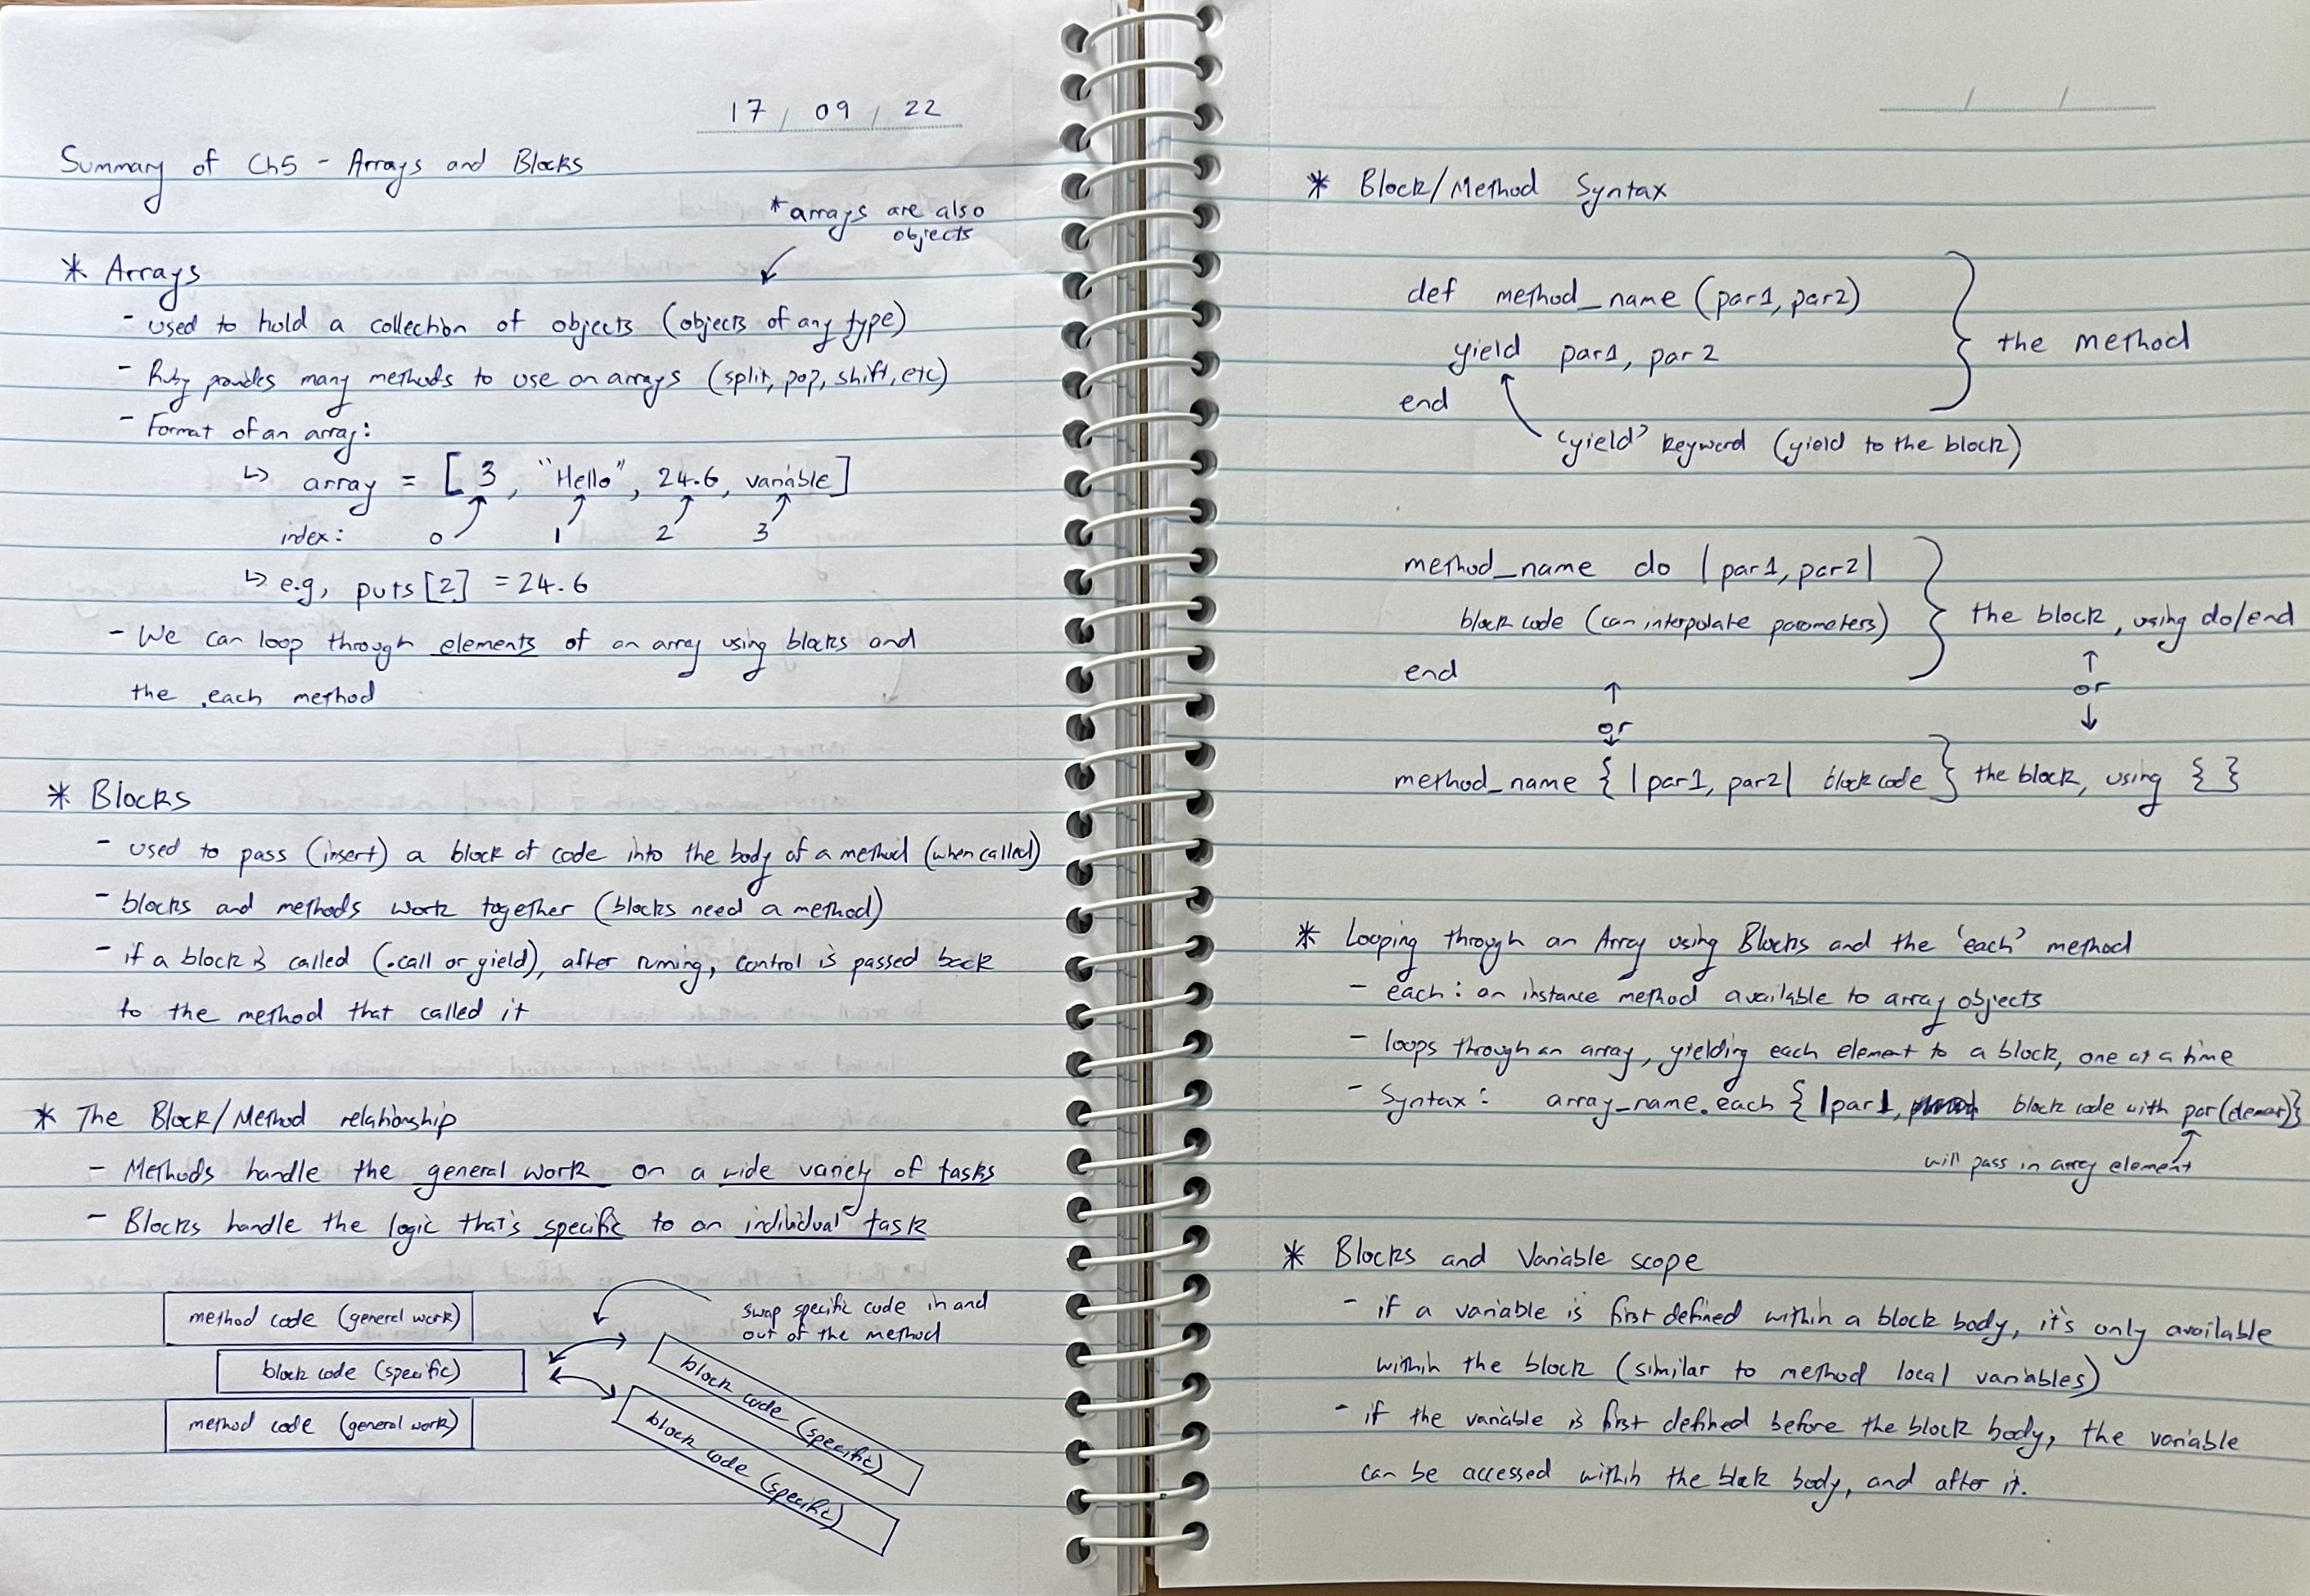 17 / 09 / 22
Summary of Ch5 - Arrays and Blocks
*arrays are also
objects
* Arrays
- used to hold a collection of objects (objects of any type)
- Ruby provides many methods to use on arrays (split, pop, shift, etc)
- Format of an array:
↳ array = [3, "Hello", 24.6, variable]
index: 0 1 2 3
↳ e.g, puts[2] = 24.6
- We can loop through elements of an array using blocks and
the .each method
* Blocks
- used to pass (insert) a block of code into the body of a method (when called)
- blocks and methods work together (blocks need a method)
- if a block is called (.call or yield), after running, control is passed back
to the method that called it
* The Block/Method relationship
- Methods handle the general work on a wide variety of tasks
- Blocks handle the logic that's specific to an individual task
swap specific code in and
out of the method
method code (general work)
block code (specific)
method code (general work)
block code (specific)
block code (specific)
/ /
* Block/Method Syntax
def method_name (par1, par2)
yield par1, par2
end
the method
'yield' keyword (yield to the block)
method_name do |par1, par2|
block code (can interpolate parameters)
end
the block, using do/end
↑
or
↓
↑
or
↓
method_name { |par1, par2| block code } the block, using { }
* Looping through an Array using Blocks and the 'each' method
- each: an instance method available to array objects
- loops through an array, yielding each element to a block, one at a time
- Syntax: array_name.each { |par1, block code with par(element)}
will pass in array element
* Blocks and Variable scope
- if a variable is first defined within a block body, it's only available
within the block (similar to method local variables)
- if the variable is first defined before the block body, the variable
can be accessed within the block body, and after it.